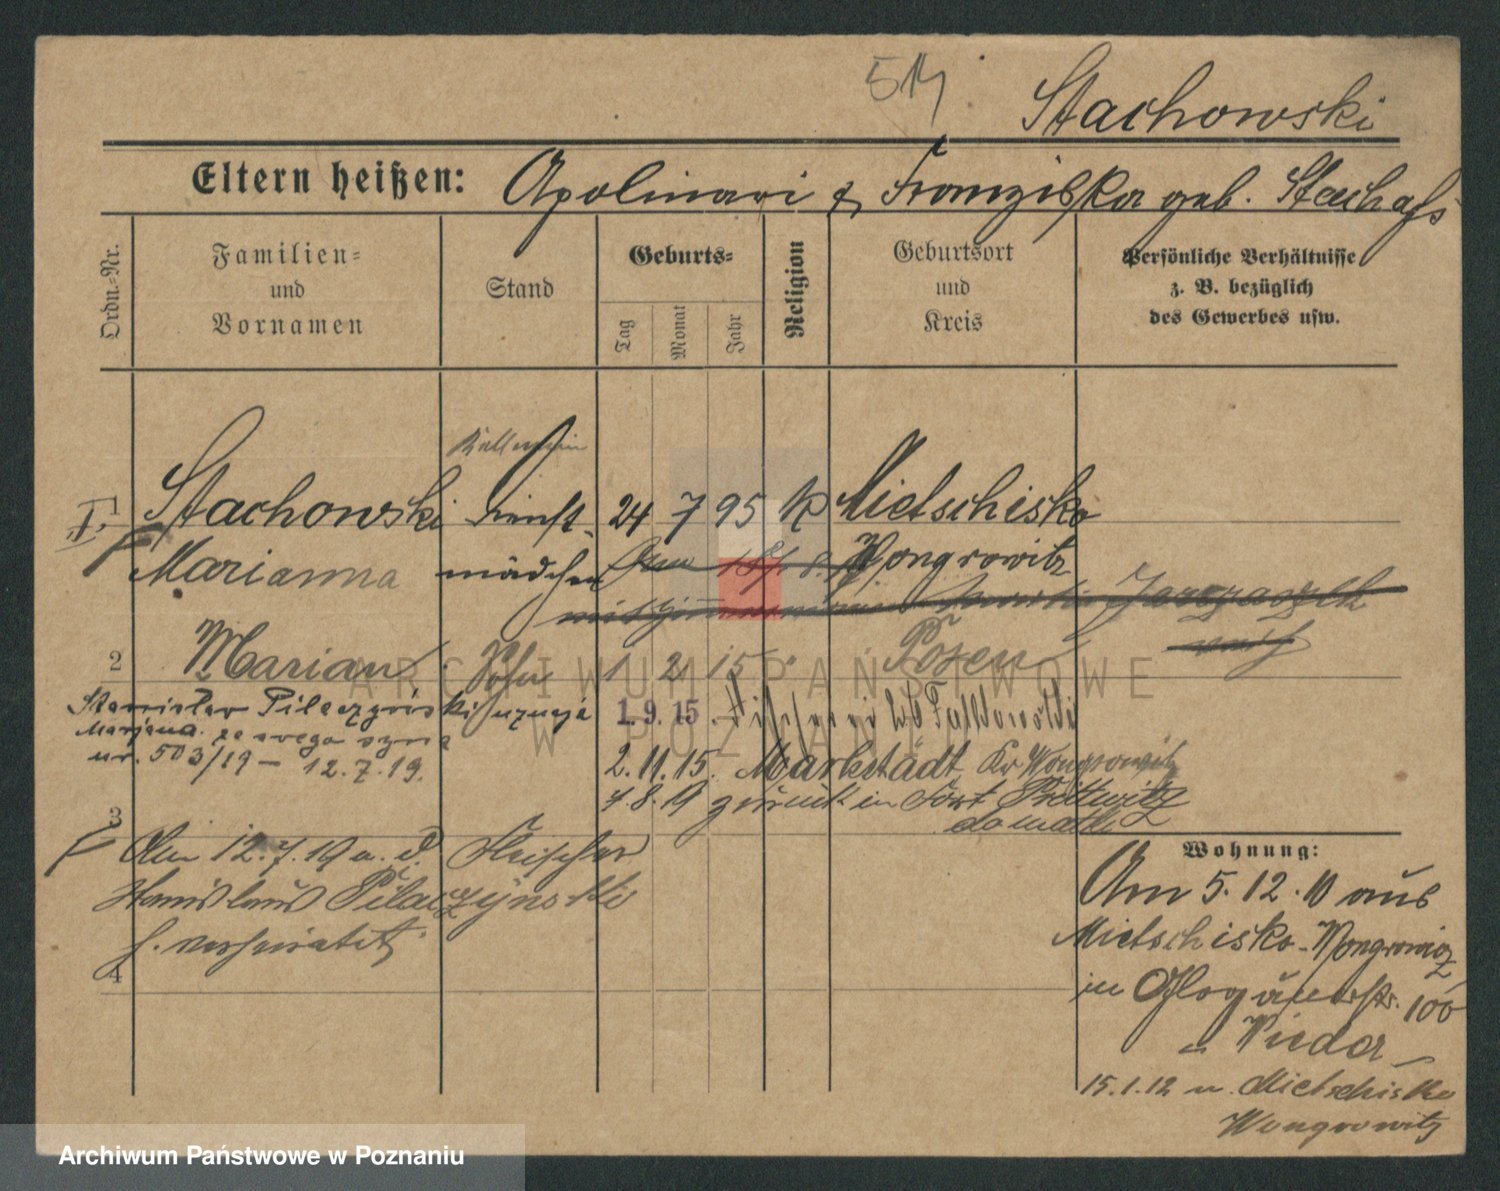 Stachowski
Eltern heißen: Apolinari & Franziska geb.
Ordn.-Nr.
Familien-
und
Vornamen
Stand
Geburts-
Tag
Monat
Jahr
Religion
Geburtsort
und
Kreis
Persönliche Verhältnisse
z. B. bezüglich
des Gewerbes usw.
I. 1 Stachowski Dienst- 24 7 95 k Mietschisko
Marianna mädchen Wongrowitz
2 Marian Sohn 1 2 15 " Posen
Stanisław Pilaczyński uznaje 1.9.15.
Marjana za swego syna
nr. 503/19 – 12.7.19.
2.11.15. Markstädt Kr Wongrowitz
7.8.19 zurück in Fort Prittwitz
3
Am 12.7.19 a. d. Fleischer
Stanislaus Pilaczynski
h. verheiratet
4
Wohnung:
Am 5.12.10 aus
Mietschisko-Wongrowitz
in Glogauerstr. 100
15.1.12 n. Mietschisko
Wongrowitz
ARCHIWUM PAŃSTWOWE
W POZNANIU
Archiwum Państwowe w Poznaniu